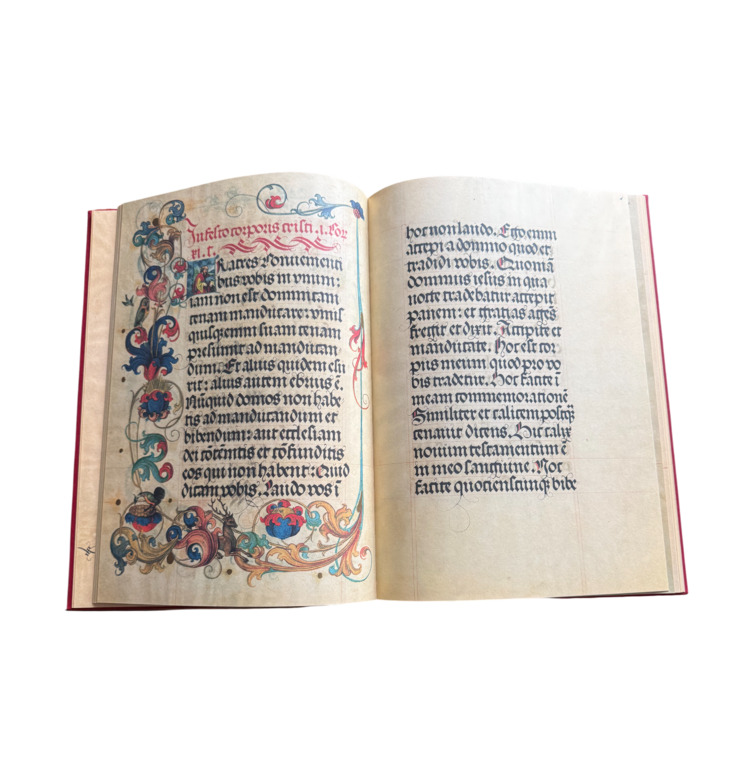 In festo corporis cristi .i. Cor
xi. c.
Fratres Conuenienti
bus vobis in vnum:
iam non est dominicam
cenam manducare: vnus
quisq enim suam cenam
presumit ad manducan
dum. Et alius quidem esu
rit: alius autem ebrius ē.
Nūquid domos non habe
tis ad manducandum et
bibendum: aut ecclesiam
dei cōtēntis et cōfunditis
eos qui non habent: Quid
dicam vobis. Laudo vos ī
hoc non laudo. Ego enim
accepi a domino quod et
tradidi vobis. Quoniā
dominus iesus in qua
nocte tradebatur accepit
panem: et gratias agēs
fregit et dixit. Accipite et
manducate. Hoc est cor
pus meum quod pro vo
bis tradetur. Hoc facite ī
meam commemorationē
Similiter et calicem postq̄
cenauit dicens. Hic calix
nouum testamentum ē
in meo sanguine. Hoc
facite quotienscunq bibe